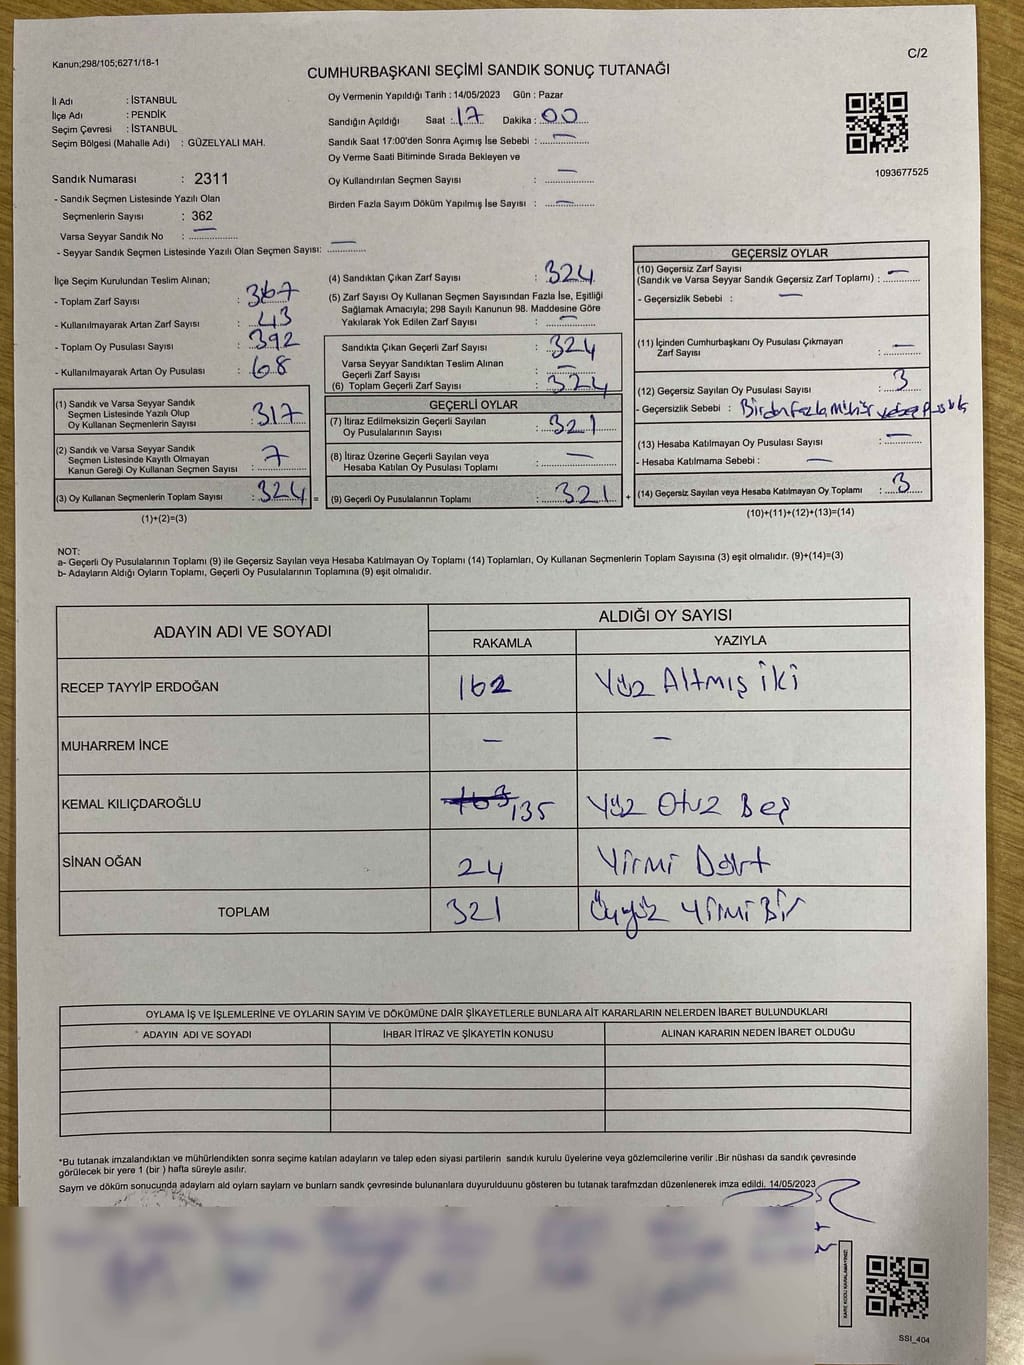 Kanun;298/105;6271/18-1
C/2
CUMHURBAŞKANI SEÇİMİ SANDIK SONUÇ TUTANAĞI
İl Adı : İSTANBUL
İlçe Adı : PENDİK
Seçim Çevresi : İSTANBUL
Seçim Bölgesi (Mahalle Adı) : GÜZELYALI MAH.
Sandık Numarası : 2311
- Sandık Seçmen Listesinde Yazılı Olan
Seçmenlerin Sayısı : 362
Varsa Seyyar Sandık No : —
- Seyyar Sandık Seçmen Listesinde Yazılı Olan Seçmen Sayısı: —
Oy Vermenin Yapıldığı Tarih : 14/05/2023 Gün : Pazar
Sandığın Açıldığı Saat : 17 Dakika : 00
Sandık Saat 17:00'den Sonra Açımış İse Sebebi : —
Oy Verme Saati Bitiminde Sırada Bekleyen ve
Oy Kullandırılan Seçmen Sayısı : —
Birden Fazla Sayım Döküm Yapılmış İse Sayısı : —
1093677525
İlçe Seçim Kurulundan Teslim Alınan;
- Toplam Zarf Sayısı : 367
- Kullanılmayarak Artan Zarf Sayısı : 43
- Toplam Oy Pusulası Sayısı : 392
- Kullanılmayarak Artan Oy Pusulası : 68
(1) Sandık ve Varsa Seyyar Sandık
Seçmen Listesinde Yazılı Olup
Oy Kullanan Seçmenlerin Sayısı : 317
(2) Sandık ve Varsa Seyyar Sandık
Seçmen Listesinde Kayıtlı Olmayan
Kanun Gereği Oy Kullanan Seçmen Sayısı : 7
(3) Oy Kullanan Seçmenlerin Toplam Sayısı : 324 =
(1)+(2)=(3)
(4) Sandıktan Çıkan Zarf Sayısı : 324
(5) Zarf Sayısı Oy Kullanan Seçmen Sayısından Fazla İse, Eşitliği
Sağlamak Amacıyla; 298 Sayılı Kanunun 98. Maddesine Göre
Yakılarak Yok Edilen Zarf Sayısı : —
Sandıkta Çıkan Geçerli Zarf Sayısı : 324
Varsa Seyyar Sandıktan Teslim Alınan
Geçerli Zarf Sayısı : —
(6) Toplam Geçerli Zarf Sayısı : 324
GEÇERLİ OYLAR
(7) İtiraz Edilmeksizin Geçerli Sayılan
Oy Pusulalarının Sayısı : 321
(8) İtiraz Üzerine Geçerli Sayılan veya
Hesaba Katılan Oy Pusulası Toplamı : —
(9) Geçerli Oy Pusulalarının Toplamı : 321 +
GEÇERSİZ OYLAR
(10) Geçersiz Zarf Sayısı
(Sandık ve Varsa Seyyar Sandık Geçersiz Zarf Toplamı) : —
- Geçersizlik Sebebi : —
(11) İçinden Cumhurbaşkanı Oy Pusulası Çıkmayan
Zarf Sayısı : —
(12) Geçersiz Sayılan Oy Pusulası Sayısı : 3
- Geçersizlik Sebebi : Birden Fazla Mühür
(13) Hesaba Katılmayan Oy Pusulası Sayısı : —
- Hesaba Katılmama Sebebi : —
(14) Geçersiz Sayılan veya Hesaba Katılmayan Oy Toplamı : 3
(10)+(11)+(12)+(13)=(14)
NOT:
a- Geçerli Oy Pusulalarının Toplamı (9) ile Geçersiz Sayılan veya Hesaba Katılmayan Oy Toplamı (14) Toplamları, Oy Kullanan Seçmenlerin Toplam Sayısına (3) eşit olmalıdır. (9)+(14)=(3)
b- Adayların Aldığı Oyların Toplamı, Geçerli Oy Pusulalarının Toplamına (9) eşit olmalıdır.
ADAYIN ADI VE SOYADI ALDIĞI OY SAYISI
RAKAMLA YAZIYLA
RECEP TAYYİP ERDOĞAN 162 Yüz Altmış iki
MUHARREM İNCE — —
KEMAL KILIÇDAROĞLU 163 135 Yüz Otuz Beş
SİNAN OĞAN 24 Yirmi Dört
TOPLAM 321 Üçyüz Yirmi Bir
OYLAMA İŞ VE İŞLEMLERİNE VE OYLARIN SAYIM VE DÖKÜMÜNE DAİR ŞİKAYETLERLE BUNLARA AİT KARARLARIN NELERDEN İBARET BULUNDUKLARI
ADAYIN ADI VE SOYADI İHBAR İTİRAZ VE ŞİKAYETİN KONUSU ALINAN KARARIN NEDEN İBARET OLDUĞU
*Bu tutanak imzalandıktan ve mühürlendikten sonra seçime katılan adayların ve talep eden siyasi partilerin sandık kurulu üyelerine veya gözlemcilerine verilir .Bir nüshası da sandık çevresinde
görülecek bir yere 1 (bir ) hafta süreyle asılır.
Saym ve döküm sonucunda adaylam ald oylarn saylarn ve bunlarn sandk çevresinde bulunanlara duyurulduunu gösteren bu tutanak tarafmzdan düzenlenerek imza edildi. 14/05/2023
KARE KODU KARALAMAYINIZ!
SSI_404